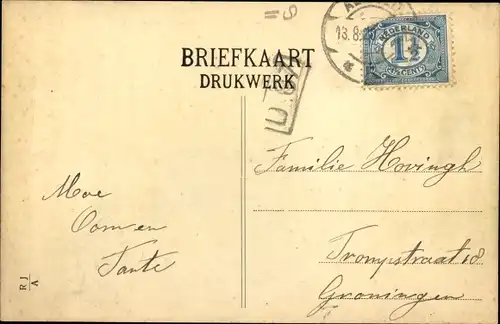 BRIEFKAART
DRUKWERK
13.8.
NEDERLAND
1½
CENT
Familie Hovingh
Moe
Oom en
Tante
Trompstraat 18
Groningen
R J
A